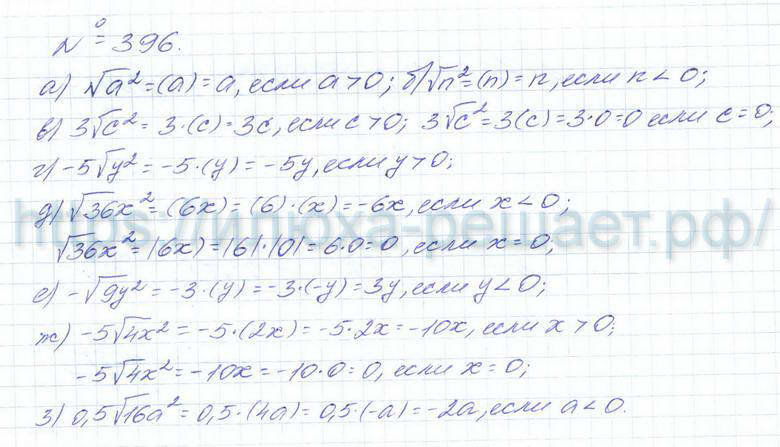 № 396.
а) √a² = (a) = a, если a > 0; б) √n² = (n) = n, если n < 0;
в) 3√c² = 3·(c) = 3c, если c > 0; 3√c² = 3(c) = 3·0 = 0 если c = 0;
г) -5√y² = -5·(y) = -5y, если y > 0;
д) √36x² = (6x) = (6)·(x) = -6x, если x < 0;
https://илюха-решает.рф/
√36x² = |6x) = |6|·|0| = 6·0 = 0, если x = 0;
е) -√9y² = -3·(y) = -3·(-y) = 3y, если y < 0;
ж) -5√4x² = -5·(2x) = -5·2x = -10x, если x > 0;
-5√4x² = -10x = -10·0 = 0, если x = 0;
з) 0,5√16a² = 0,5·(4a) = 0,5·(-a) = -2a, если a < 0.